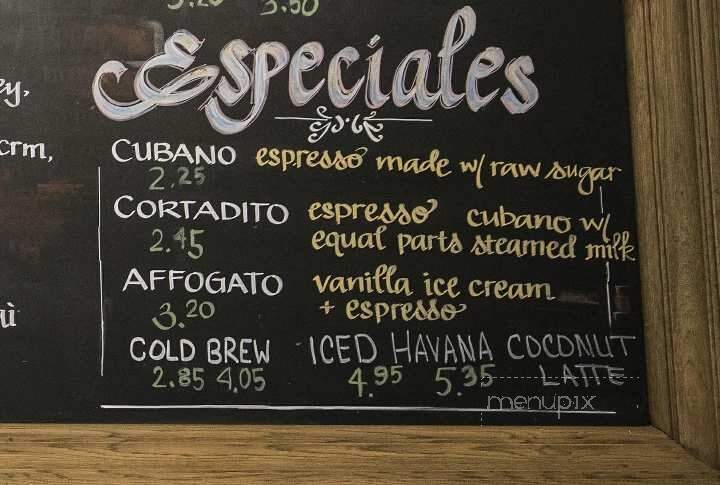 3.50
Especiales
ey,
crm,
CUBANO espresso made w/ raw sugar
2.25
CORTADITO espresso cubano w/
2.45 equal parts steamed milk
AFFOGATO vanilla ice cream
3.20 + espresso
COLD BREW ICED HAVANA COCONUT
2.85 4.05 4.95 5.35 LATTE
menupix